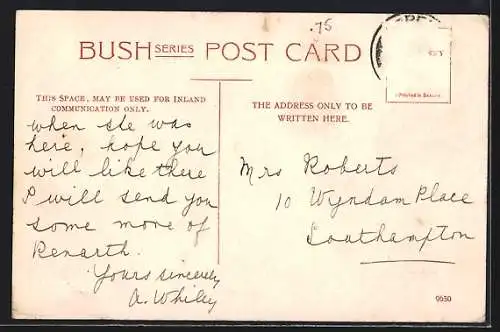 .75
BUSH SERIES POST CARD
THIS SPACE, MAY BE USED FOR INLAND
COMMUNICATION ONLY.
THE ADDRESS ONLY TO BE
WRITTEN HERE.
when she was
here, hope you
will like there
I will send you
some more of
Penarth.
Yours sincerely
A. Whiley
Mrs Roberts
10 Wyndam Place
Southampton
0650